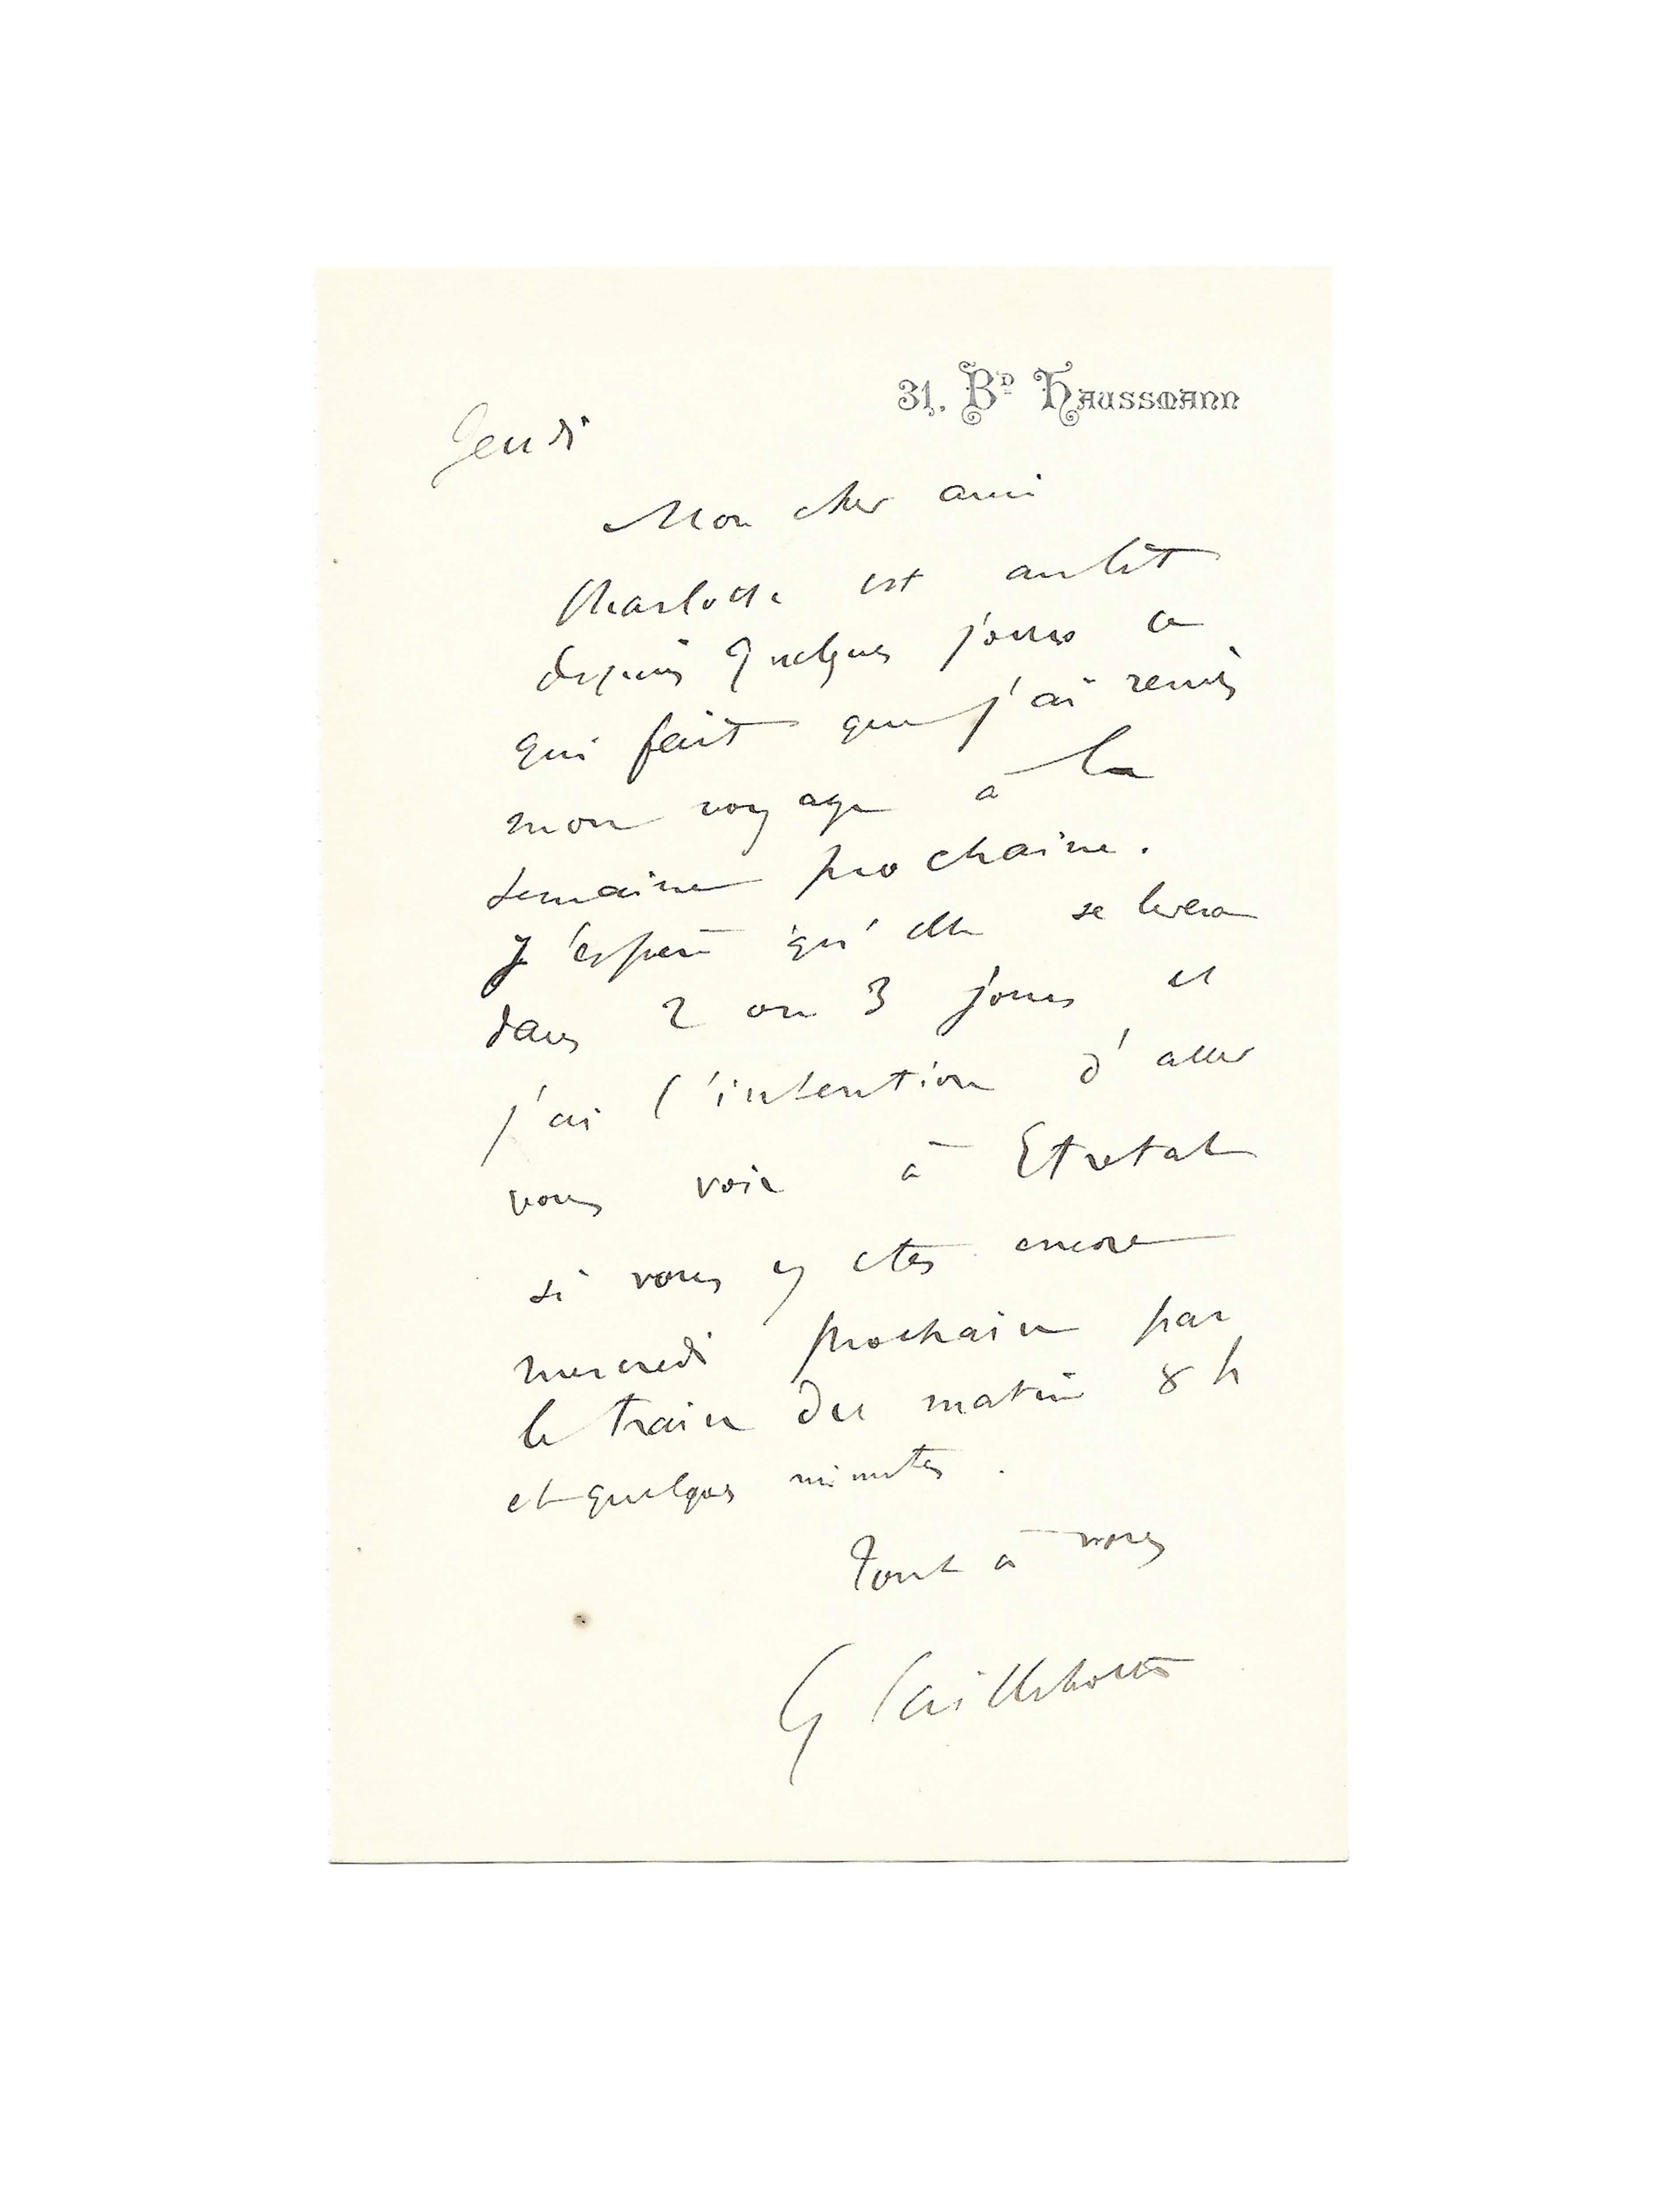 31, Bᴰ Haussmann
Jeudi
Mon cher ami
Charlotte est au lit
depuis quelques jours ce
qui fait que j'ai remis
mon voyage à la
semaine prochaine.
J'espère qu'elle se lèvera
dans 2 ou 3 jours et
j'ai l'intention d'aller
vous voir à Etretat
si vous y etes encore
mercredi prochain par
le train du matin 8 h
et quelques minutes.
Tout à vous
G Caillebotte